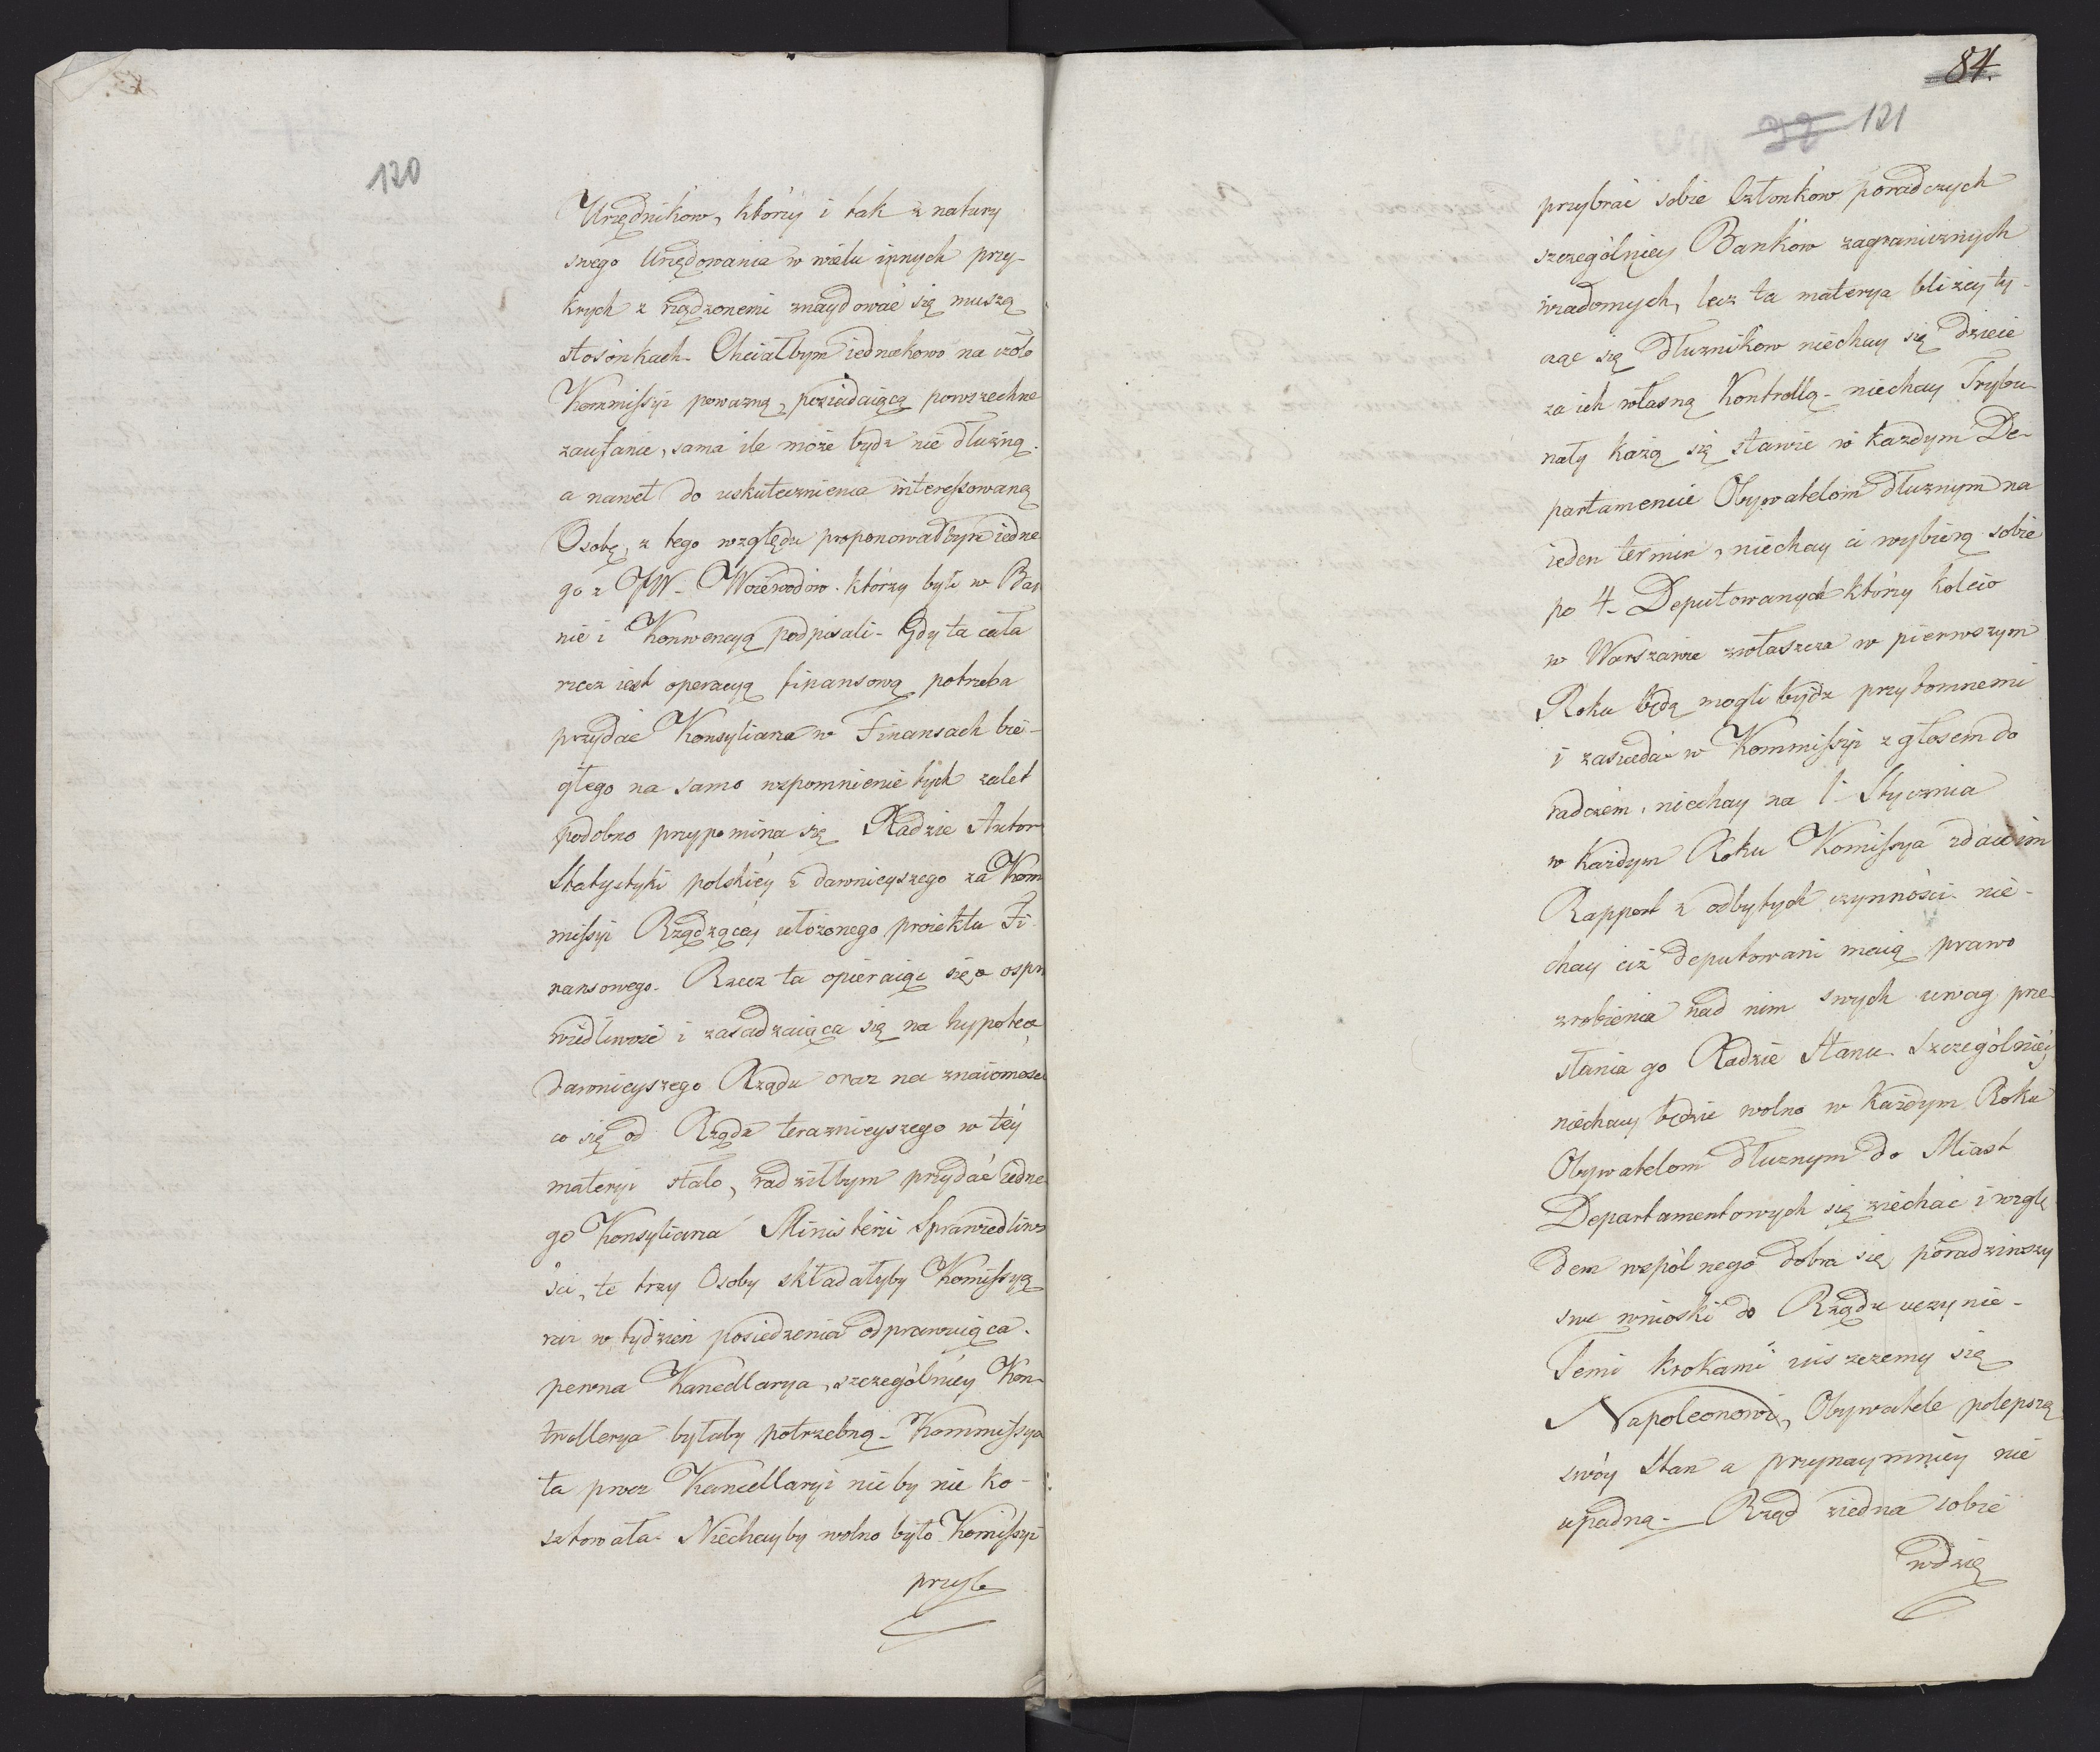 120
Urzędnikow, którzy i tak z natury
swego Urzędowania w wielu innych przy-
krych z rządzonemi znaydować się muszą
stosónkach. Chciałbym iednakowo na czóło
Kommissyi poważną, posiadaiącą powszechne
zaufanie, sama ile może bydz nie dłużną.
a nawet do uskutecznienia interessowaną
Osobę, z tego względu proponowałbym iedne
go z JW. Woiewodów. którzy byli w Baio
nie i Konwencyą podpisali. Gdy ta cała
rzecz iest operacyą finansową potrzeba
przydać Konsyliarza w Finansach bie-
głego na samo wspomnienie tych zalet
podobno przypomina się Radzie Autor
Statystyki polskiéy i dawnieyszego za Kom
missyi Rządzącey ułożonego proiektu Fi
nansowego. Rzecz ta opieraiąc się o spra
wiedliwość i zasadzaiąca się na hypotece
dawnieyszego Rządu oraz na znaiomości
co się od Rządu teraznieyszego w téy
materyi stało, radziłbym przydać iedne
go Konsyliarza Ministerii Sprawiedliwo
ści, te trzy Osoby składałyby Komissyą
raz w tydzień posiedzenia odprawuiąca.
pewna Kancellarya, szczególniéy Kon-
trollerya byłaby potrzebną. Kommissya
ta prócz Kancellaryi nic by nie ko-
sztowała. Niechayby wolno było Komissyi
przyb
84.
121
przybrać sobie Członków poradczych
szczególniey Banków zagranicznych
wiadomych, lecz ta materya bliżey ty-
cząc się Dłużnikow niechay się dzieie
za ich własną Kontrollą. niechay Trybu-
nały każą się stawić w każdym De-
partamencie Obywatelom dłużnym na
ieden termin, niechay ci wybierą sobie
po 4. Deputowanych którzy koleio
w Warszawie zwłaszcza w pierwszym
Roku będą mogli bydz przytomnemi
i zasiedać w Kommissyi z głosem do
radczém, niechay na 1. Stycznia
w każdym Roku Komissya zdaie im
Rapport z odbytych czynności. nie-
chay ciż deputowani maią prawo
zrobienia nad nim swych uwag prze-
słania go Radzie Stanu. Szczególniéy
niechay będzie wolno w każdym Roku
Obywatelom dłużnym do Miast
Departamentowych się ziechać i wzglę
dem wspólnego dobra się poradziwszy
swe wnioski do Rządu uczynić.
Temi krokami uiszczemy się
Napoleonowi, Obywatele polepszą
swóy Stan a przynaymniey nie
upadną. Rząd ziedna sobie
wdzię